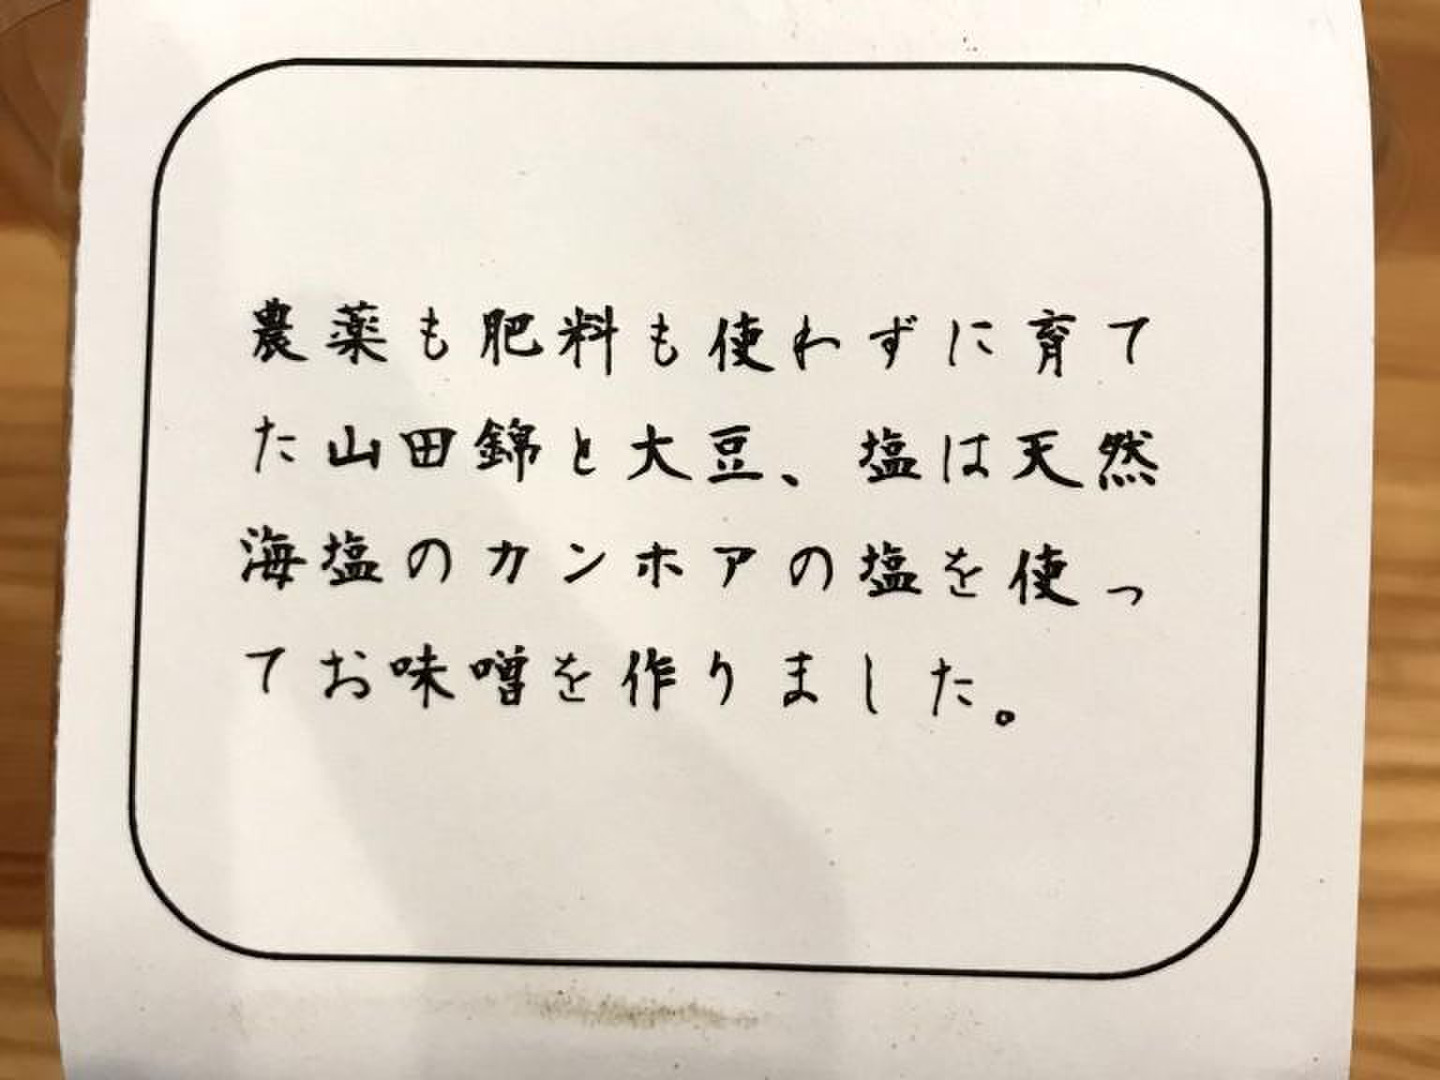 農薬も肥料も使わずに育て
た山田錦と大豆、塩は天然
海塩のカンホアの塩を使っ
てお味噌を作りました。